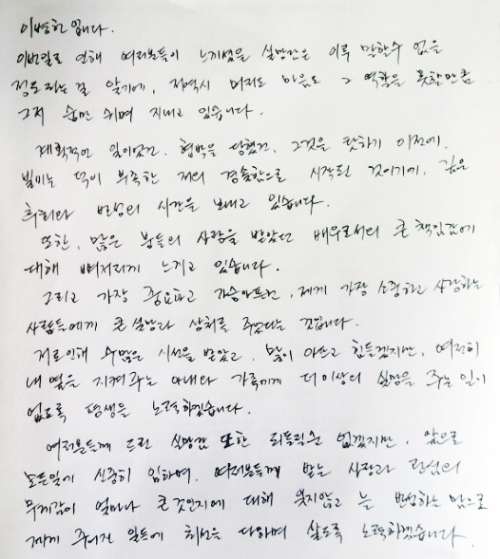 이병헌입니다.
이번일로 인해 여러분들이 느끼셨을 실망감은 이루 말할수 없을
정도라는걸 알기에, 저역시 머리도 마음도 그 역할을 못할만큼
그저 숨만 쉬며 지내고 있습니다.
계획적인 일이었건, 협박을 당했건, 그것을 탓하기 이전에,
빌미는 덕이 부족한 저의 경솔함으로 시작된 것이기에, 깊은
후회와 반성의 시간을 보내고 있습니다.
또한, 많은 분들의 사랑을 받았던 배우로서의 큰 책임감에
대해 뼈저리게 느끼고 있습니다.
그리고 가장 중요하고 가슴아프건, 제게 가장 소중하고 사랑하는
사람들에게 큰 실망과 상처를 주었다는 겁니다.
저로인해 수많은 시선을 받았고, 많이 아프고 힘들겠지만, 여전히
내 옆을 지켜주는 아내와 가족에게 더이상의 실망을 주는 일이
없도록 평생을 노력하겠습니다.
여러분들께 드린 실망감 또한 되돌릴순 없겠지만, 앞으로
모든일에 신중히 임하며, 여러분들께 받는 사랑과 관심의
무게감이 얼마나 큰것인지에 대해 잊지않고 늘 반성하는 맘으로
제게 주어진 일들에 최선을 다하며 살도록 노력하겠습니다.